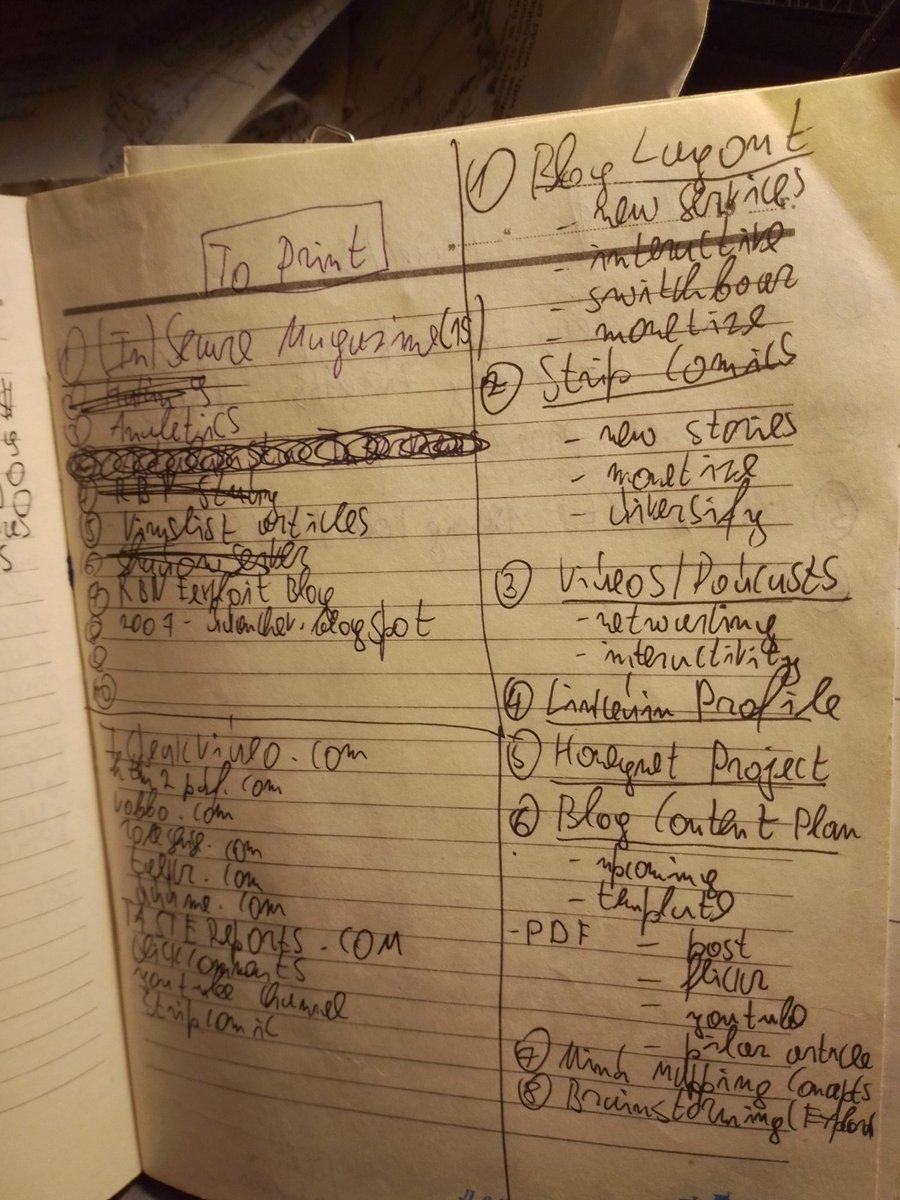 To Print
① (In)Secure Magazine (15)
③ Analetics
④
⑤ RBN Study
⑤ Viruslist articles
⑥
⑦ RBN Exploit Blog
⑧ 2007 - .blogspot
⑨
⑩
video.com
htm2pdf.com
.com
.com
.com
.com
TASTEREPORTS.COM
clickcomments
youtube channel
strip comic
① Blog Layout
- new services
- interactive
- switchboar
- monetize
② Strip Comics
- new stories
- monetize
- diversify
③ Videos/Podcasts
- networking
- interactivity
④ Linkedin Profile
⑤ Honeynet Project
⑥ Blog Content Plan
- upcoming
- template
- PDF - post
- flickr
- youtube
- pilar article
⑦ Mind Mapping Concepts
⑧ Brainstorming (Explor